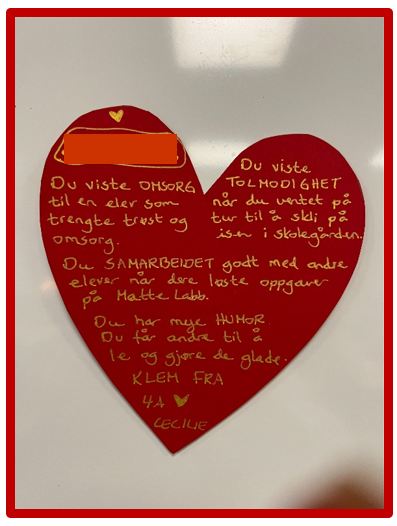 Du viste OMSORG
til en elev som
trengte trøst og
omsorg.
Du viste
TOLMODIGHET
når du ventet på
tur til å skli på
isen i skolegården.
Du SAMARBEIDET godt med andre
elever når dere løste oppgaver
på Matte Labb.
Du har mye HUMOR.
Du får andre til å
le og gjøre de glade.
KLEM FRA
4A
CECILIE